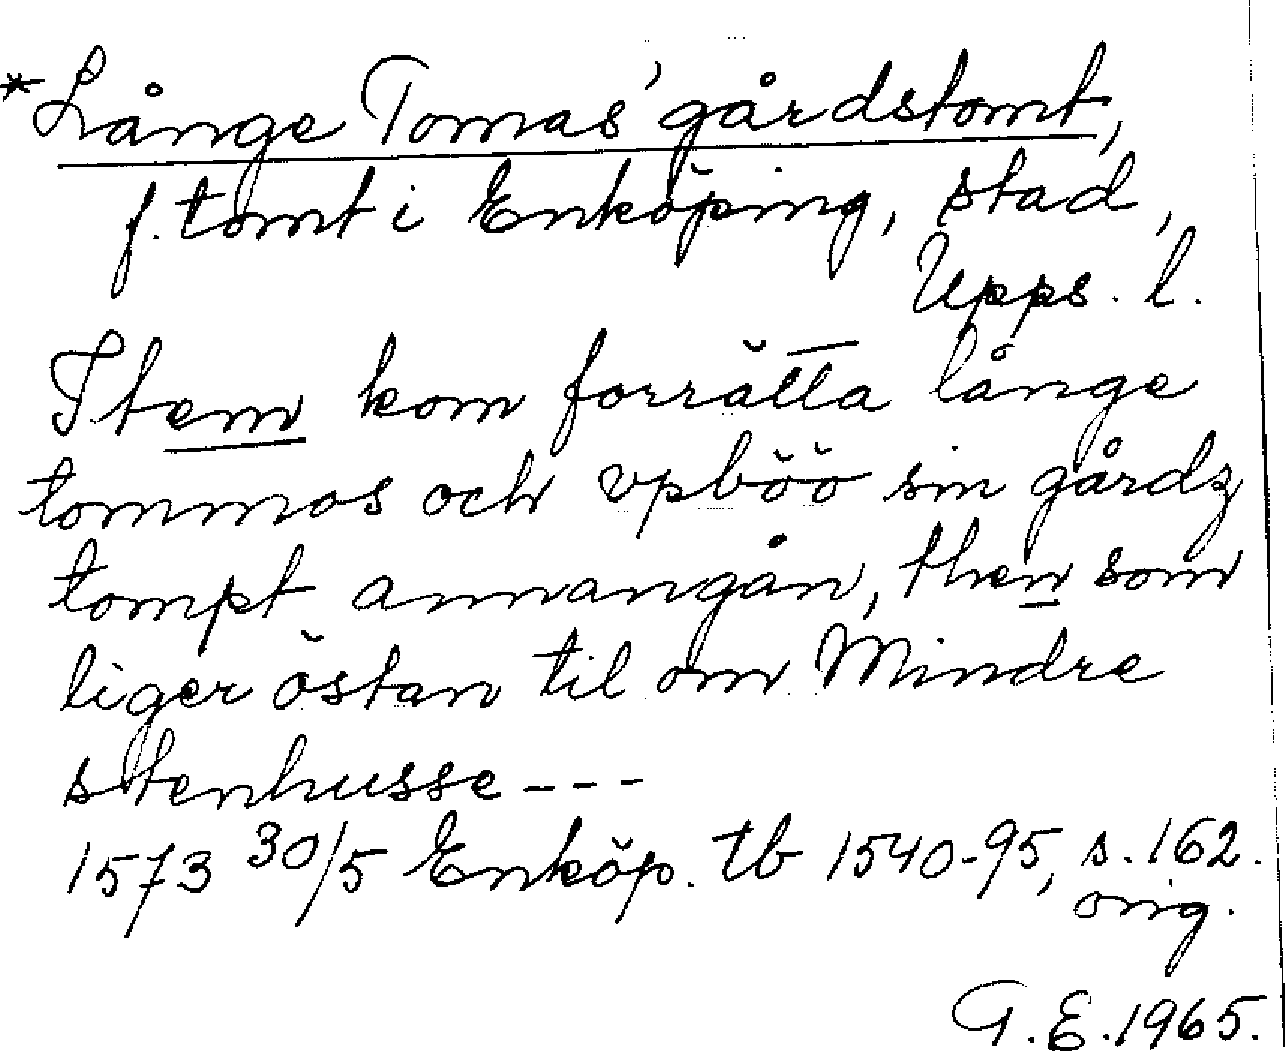 *Långe Tomas' gårdstomt,
f. tomt i Enköping, stad,
Upps. l.
Item kom forrätta långe
tommos och vpböö sin gårdz
tompt annangån, then som
liger östan til om Mindre
stenhusse - - -
1573 30/5 Enköp. tb 1540-95, s. 162.
orig.
G. E. 1965.